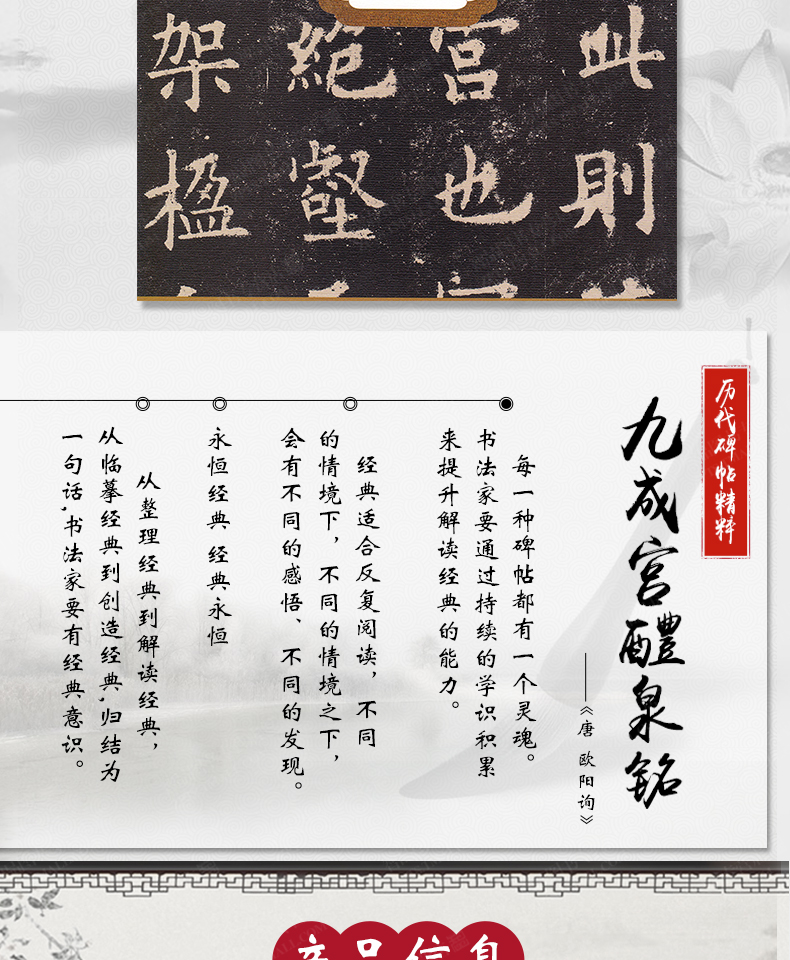 此則
宮也
絕壑
架楹
历代碑帖精粹
九成宫醴泉铭
——《唐 欧阳询》
每一种碑帖都有一个灵魂。
书法家要通过持续的学识积累
来提升解读经典的能力。
经典适合反复阅读，不同
的情境下，不同的情境之下，
会有不同的感悟、不同的发现。
永恒经典 经典永恒
从整理经典到解读经典，
从临摹经典到创造经典，归结为
一句话，书法家要有经典意识。
产品信息